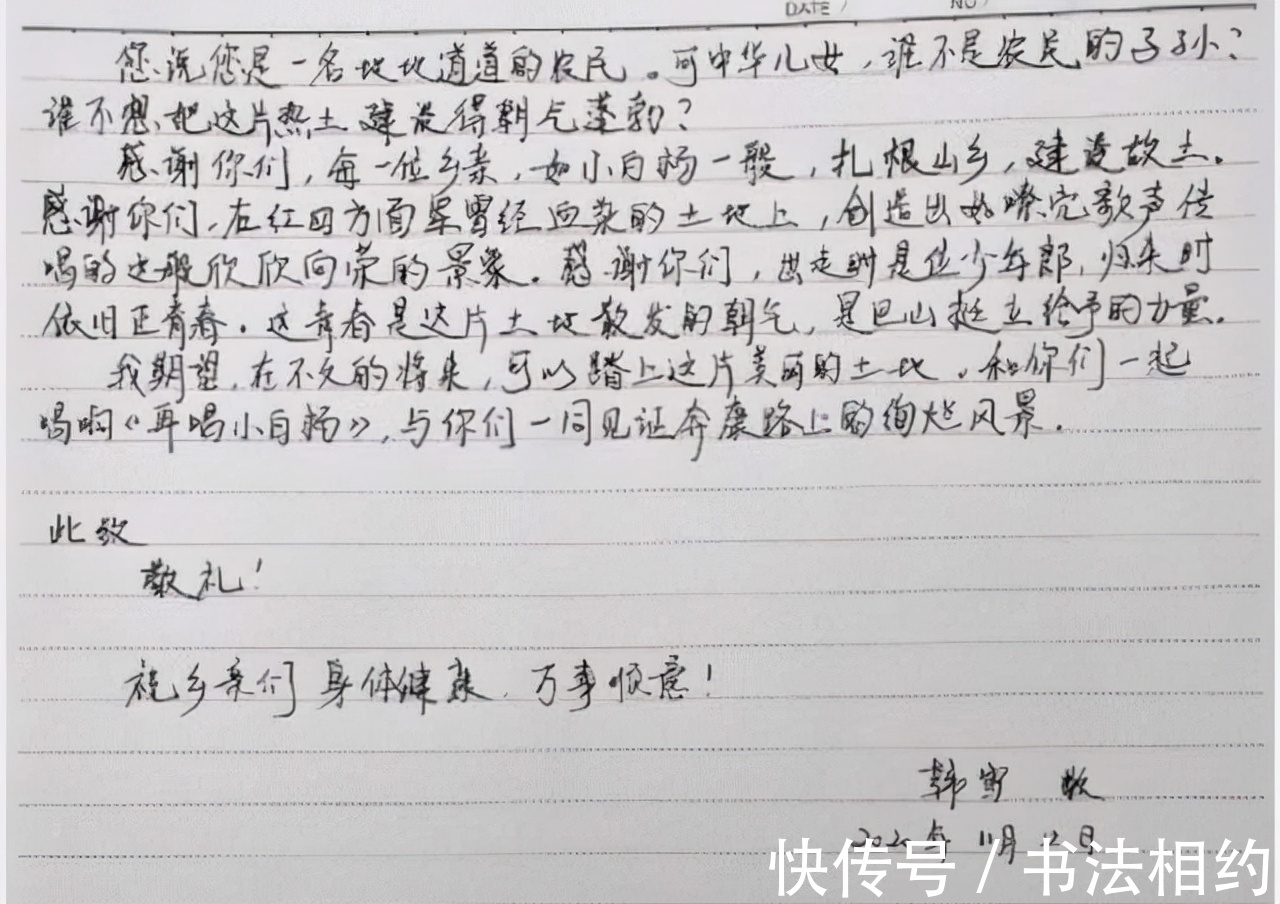 DATE / NO /
您说您是一名地地道道的农民。可中华儿女，谁不是农民的子孙？
谁不想把这片热土建设得朝气蓬勃？
感谢你们，每一位乡亲，如小白杨一般，扎根山乡，建设故土。
感谢你们，在红四方面军曾经血染的土地上，创造出如嘹亮歌声传
唱的这般欣欣向荣的景象。感谢你们，出走时是位少年郎，归来时
依旧正青春。这青春是这片土地散发的朝气，是巴山挺立给予的力量。
我期望，在不久的将来，可以踏上这片美丽的土地，和你们一起
唱响《再唱小白杨》，与你们一同见证奔康路上的绚烂风景。
此致
敬礼！
祝乡亲们身体健康，万事顺意！
韩 敬
年 11月12日
快传号 / 书法相约